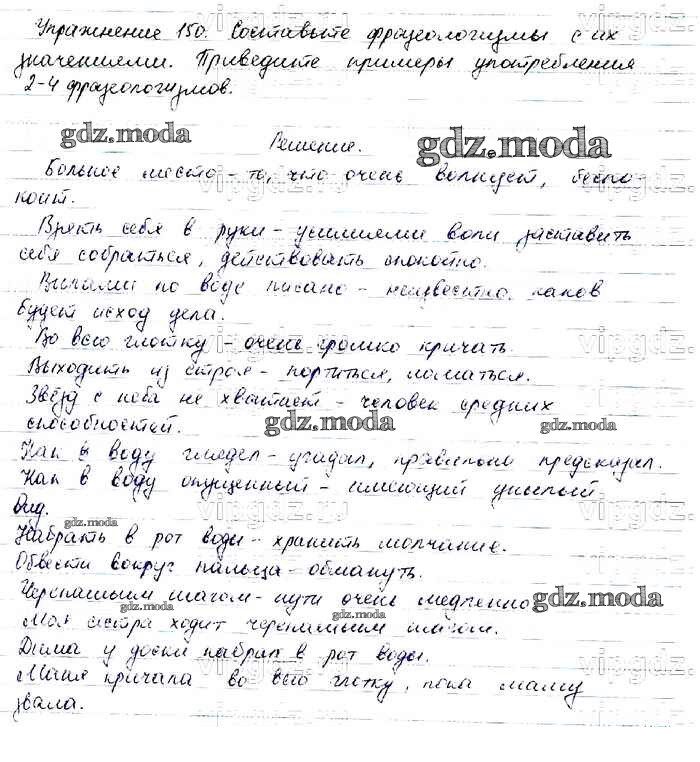 Упражнение 150. Составьте фразеологизмы с их
значениями. Приведите примеры употребления
2-4 фразеологизмов.
gdz.moda
Решение.
gdz.moda
Больное место - то, что очень волнует, беспо-
коит.
Взять себя в руки - усилиями воли заставить
себя собраться, действовать спокойно.
Вилами по воде писано - неизвестно, каков
будет исход дела.
Во всю глотку - очень громко кричать.
Выходить из строя - портиться, ломаться.
Звёзд с неба не хватает - человек средних
способностей.
gdz.moda
gdz.moda
Как в воду глядел - угадал, правильно предсказал.
Как в воду опущенный - имеющий унылый
вид.
gdz.moda
Набрать в рот воды - хранить молчание.
Обвести вокруг пальца - обмануть.
Черепашьим шагом - пути очень медленно
gdz.moda
gdz.moda
gdz.moda
Моя сестра ходит черепашьим шагом.
Дима у доски набрал в рот воды.
Маня кричала во всю глотку, пока маму
звала.